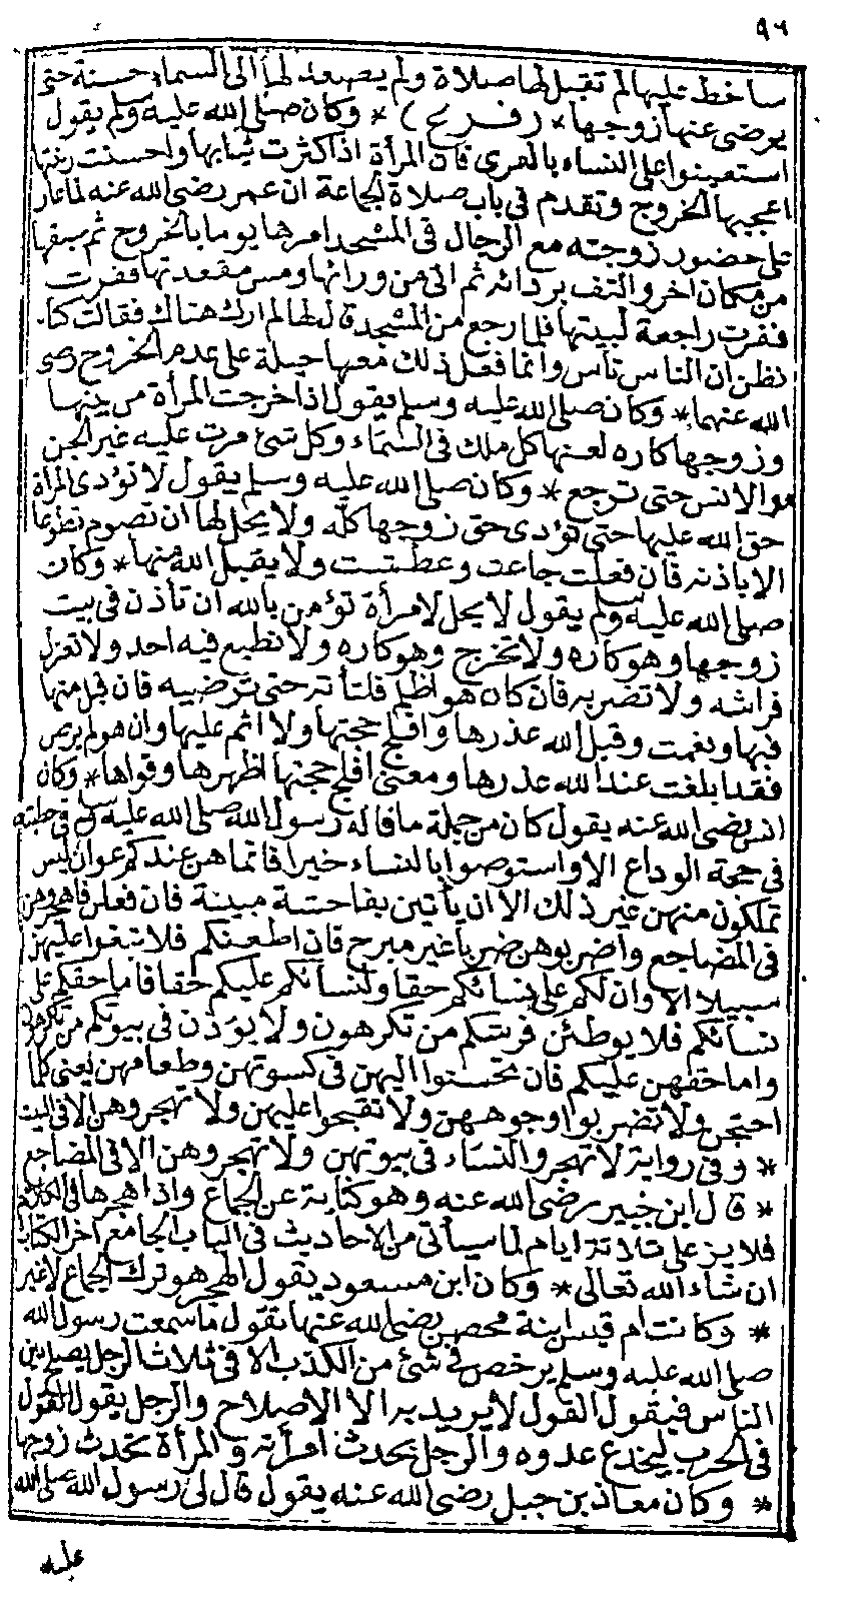 ٩٦
ساخط عليها لم تقبل لها صلاة ولم يصعد لها الى السماء حسنة حتى
يرضى عنها زوجها * (فرع) * وكان صلى الله عليه وسلم يقول
استعينوا على النساء بالعرى فان المرأة اذا كثرت ثيابها واحسنت زينتها
اعجبها الخروج وتقدم فى باب صلاة الجماعة ان عمر رضى الله عنه لما غار
على حضور زوجته مع الرجال فى المسجد امرها يوما بالخروج ثم سبقها
من مكان اخر والتف بردائه ثم اتى من ورائها ومس مقعدتها ففرت
ففرت راجعة لبيتها فلما رجع من المسجد قال لها لم ارك هناك فقالت كنا
نظن ان الناس ناس وانما فعل ذلك معها حيلة على عدم الخروج رضى
الله عنهما * وكان صلى الله عليه وسلم يقول اذا خرجت المرأة من بيتها
وزوجها كاره لعنها كل ملك فى السماء وكل شئ مرت عليه غير الجن
والانس حتى ترجع * وكان صلى الله عليه وسلم يقول لا تؤدى المرأة
حق الله عليها حتى تؤدى حق زوجها كله ولا يحل لها ان تصوم تطوعا
الا باذنه فان فعلت جاعت وعطشت ولا يقبل الله منها * وكان
صلى الله عليه وسلم يقول لا يحل لامرأة تؤمن بالله ان تأذن فى بيت
زوجها وهو كاره ولا تخرج وهو كاره ولا تطيع فيه احد ولا تعزل
فراشه ولا تضربه فان كان هو اظلم فلتأته حتى ترضيه فان قبل منها
فبها ونعمت وقبل الله عذرها وافلج حجتها ولا اثم عليها وان هو لم يرض
فقد ابلغت عند الله عذرها ومعنى افلج حجتها اظهرها وقواها * وكان
انس رضى الله عنه يقول كان من جملة ما قاله رسول الله صلى الله عليه وسلم فى خطبته
فى حجة الوداع الا واستوصوا بالنساء خيرا فانما هن عندكم عوان ليس
تملكون منهن غير ذلك الا ان يأتين بفاحشة مبينة فان فعلن فاهجروهن
فى المضاجع واضربوهن ضربا غير مبرح فان اطعنكم فلا تبغوا عليهن
سبيلا الا وان لكم على نسائكم حقا ولنسائكم عليكم حقا فاما حقكم على
نسائكم فلا يوطئن فرشكم من تكرهون ولا يؤذن فى بيوتكم من تكرهون
واما حقهن عليكم فان تحسنوا اليهن فى كسوتهن وطعامهن يعنى كلما
احتجن ولا تضربوا وجوههن ولا تقبحوا عليهن ولا تهجروهن الا فى البيت
* وفى رواية لا تهجروا النساء فى بيوتهن ولا تهجروهن الا فى المضاجع
* قال ابن جبير رضى الله عنه وهو كناية عن الجماع واذا هجرها فى الكلام
فلا يزد على ثلاثة ايام لما سيأتى من الاحاديث فى الباب الجامع اخر الكتاب
ان شاء الله تعالى * وكان ابن مسعود يقول الهجر هو ترك الجماع لا غير
* وكانت ام قيس ابنة محصن رضى الله عنها تقول ما سمعت رسول الله
صلى الله عليه وسلم يرخص فى شئ من الكذب الا فى ثلاث الرجل يصلح بين
الناس فيقول القول لا يريد به الا الاصلاح والرجل يقول القول
فى الحرب ليخدع عدوه والرجل يحدث امرأته والمرأة تحدث زوجها
* وكان معاذ بن جبل رضى الله عنه يقول قال لى رسول الله صلى الله
عليه